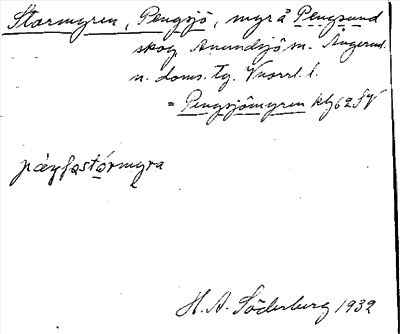 Stormyren, Pengsjö, myr å Pengsund
skog Anundsjö sn. Ångerml.
n. doms. tg. Vnorrl. l.
= Pengsjömyren kbl 62 SV
H. A. Söderberg 1932